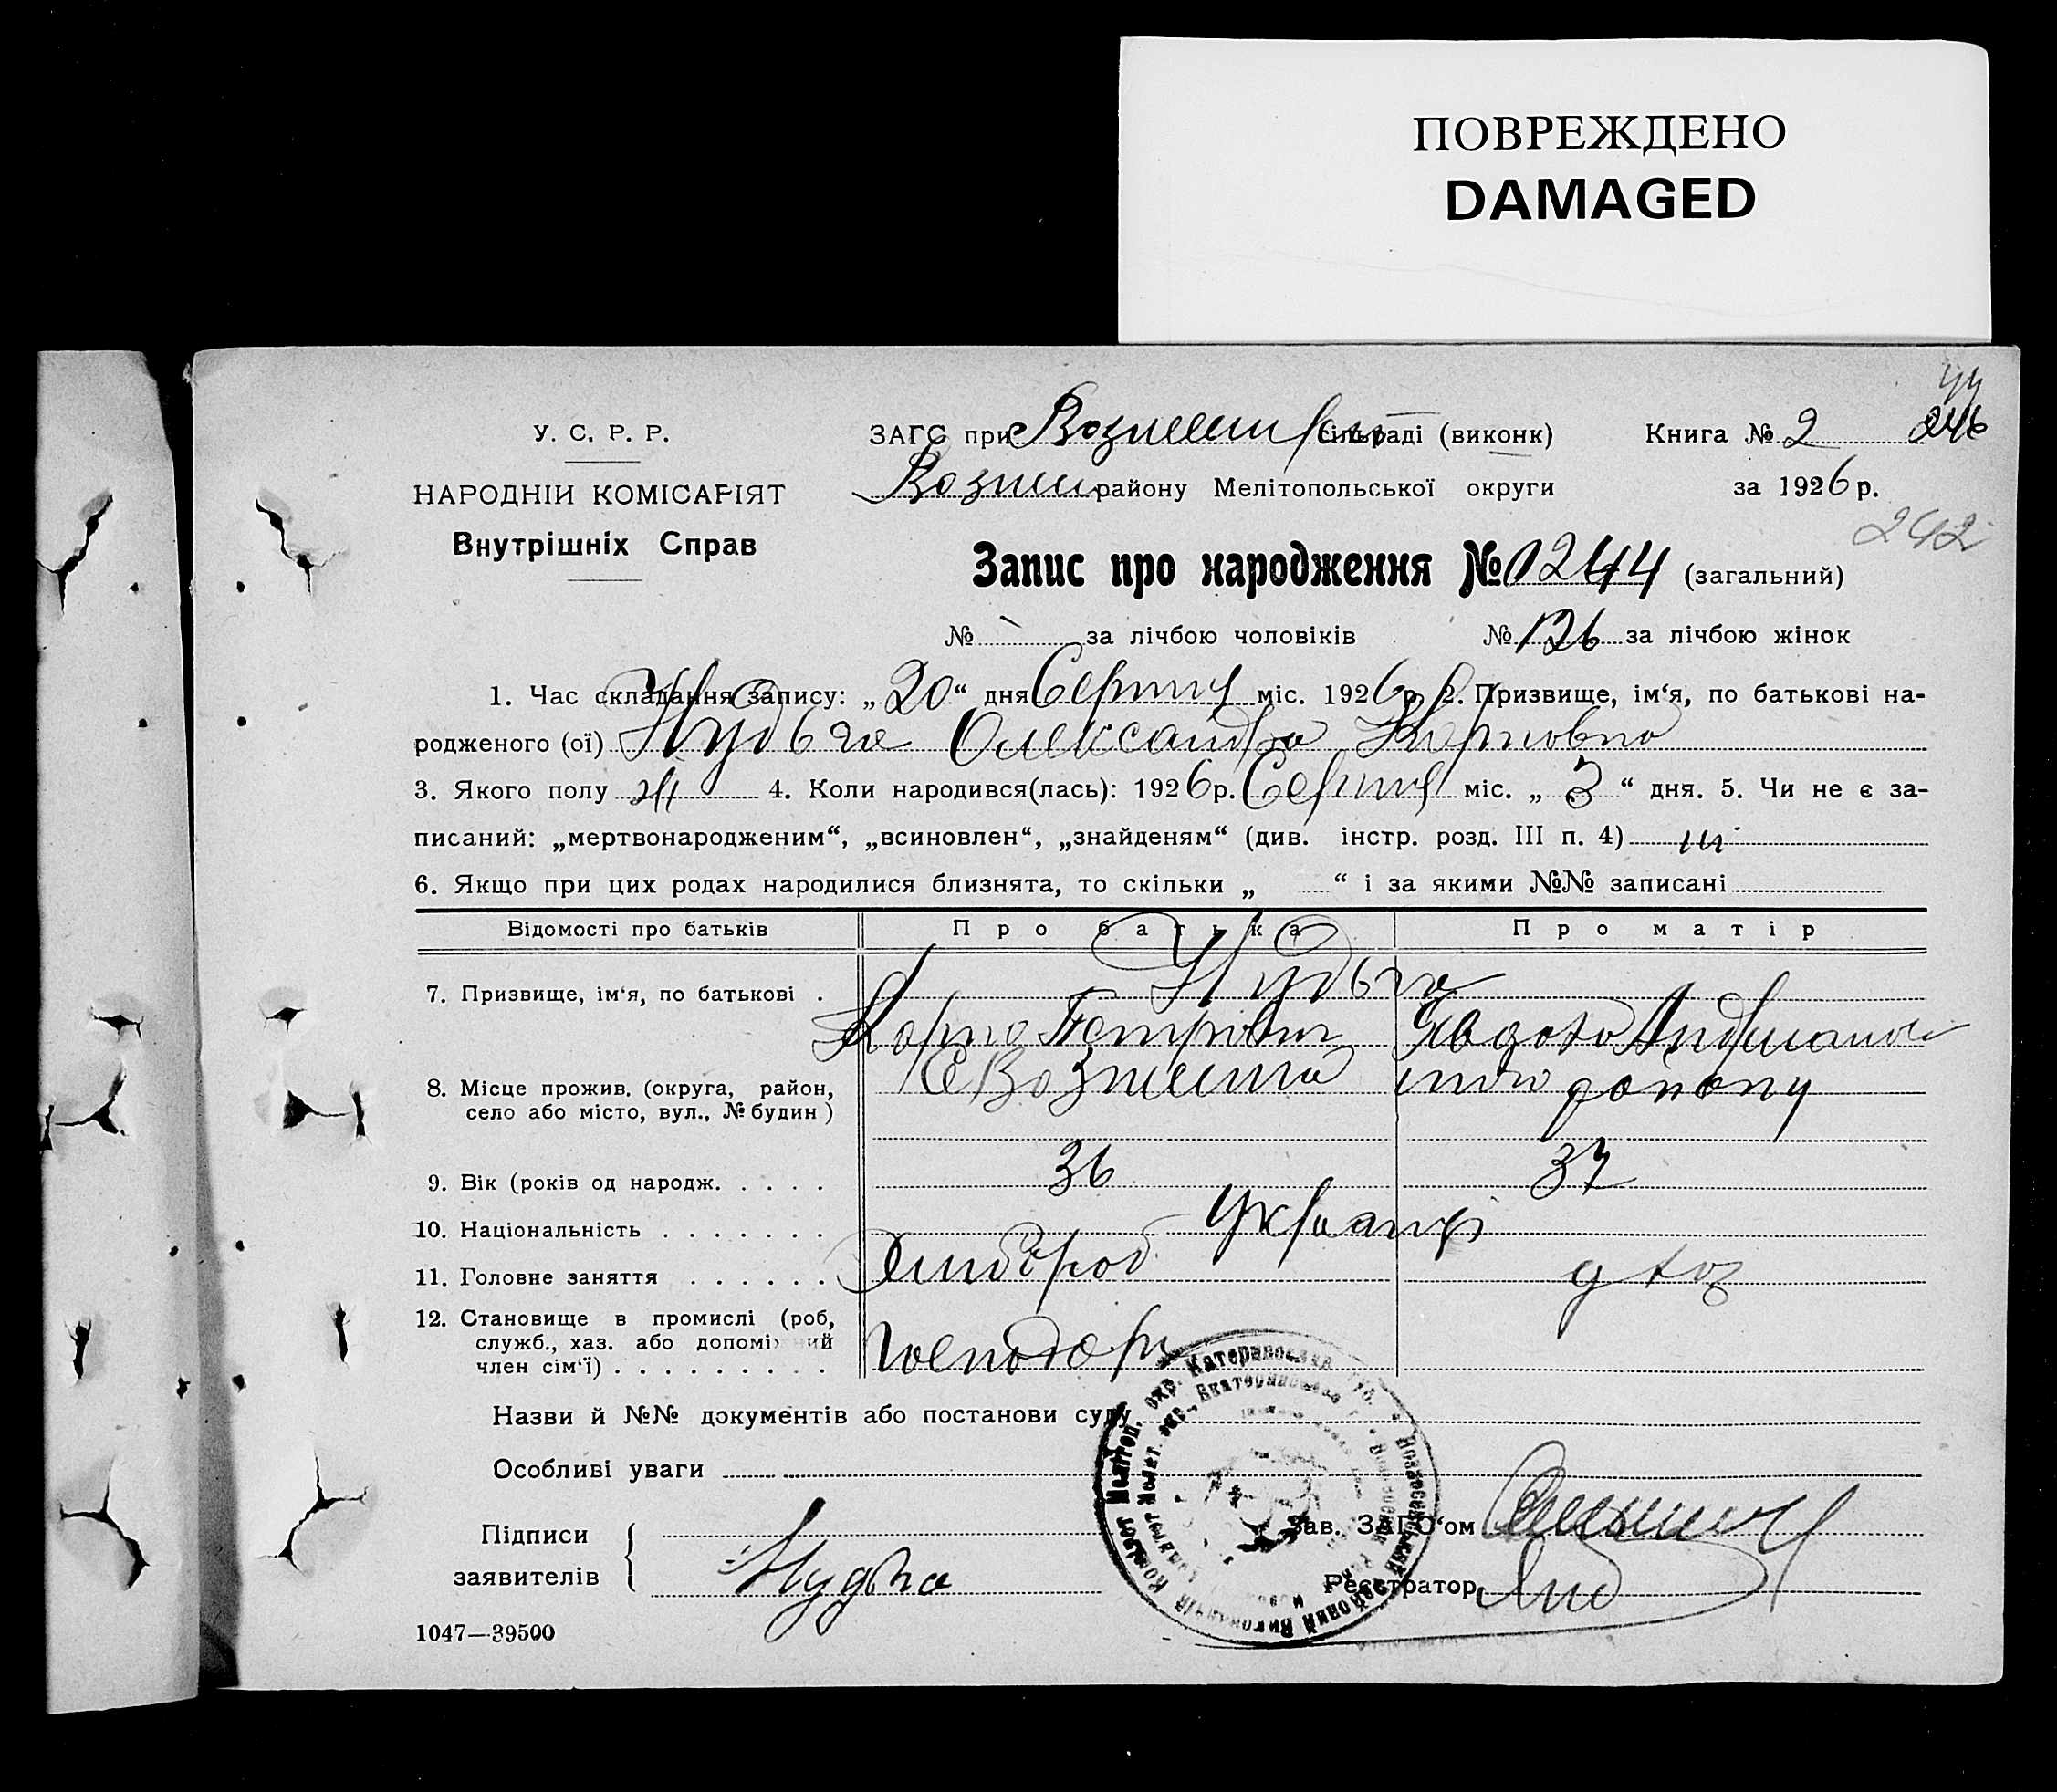 ПОВРЕЖДЕНО
DAMAGED
44
У. С. Р. Р.
ЗАГС при сільраді (виконк) Книга № 2 246
НАРОДНІЙ КОМІСАРІЯТ
Вознес району Мелітопольської округи за 1926 р.
Внутрішніх Справ
242
Запис про народження № 1244 (загальний)
№ за лічбою чоловіків № 126 за лічбою жінок
1. Час складання запису: „20“ дня Серпня міс. 1926 р. 2. Призвище, ім‘я, по батькові на-
родженого (ої) Нудьга Олександра Карповна
3. Якого полу ж 4. Коли народився(лась): 1926 р. Серпня міс. „3“ дня. 5. Чи не є за-
писаний: „мертвонародженим“, „всиновлен“, „знайденям“ (див. інстр. розд. III п. 4) ні
6. Якщо при цих родах народилися близнята, то скільки „ “ і за якими №№ записані
Відомості про батьків Про батька Про матір
7. Призвище, ім‘я, по батькові . Нудьга
Карпо Петрович Явдоха Андріанов
8. Місце прожив. (округа, район, с Вознесенка того району
село або місто, вул., № будин )
9. Вік (років од народж. . . . . 36 37
10. Національність . . . . . . . Українці
11. Головне заняття . . . . . . Хлібороб
12. Становище в промислі (роб, господар
служб., хаз. або допоміжний
член сім‘ї) . . . . . . . . .
Назви й №№ документів або постанови суду
Особливі уваги
Підписи
заявителів Нудьга
Зав. ЗАГС‘ом
Реєстратор
1047—39500